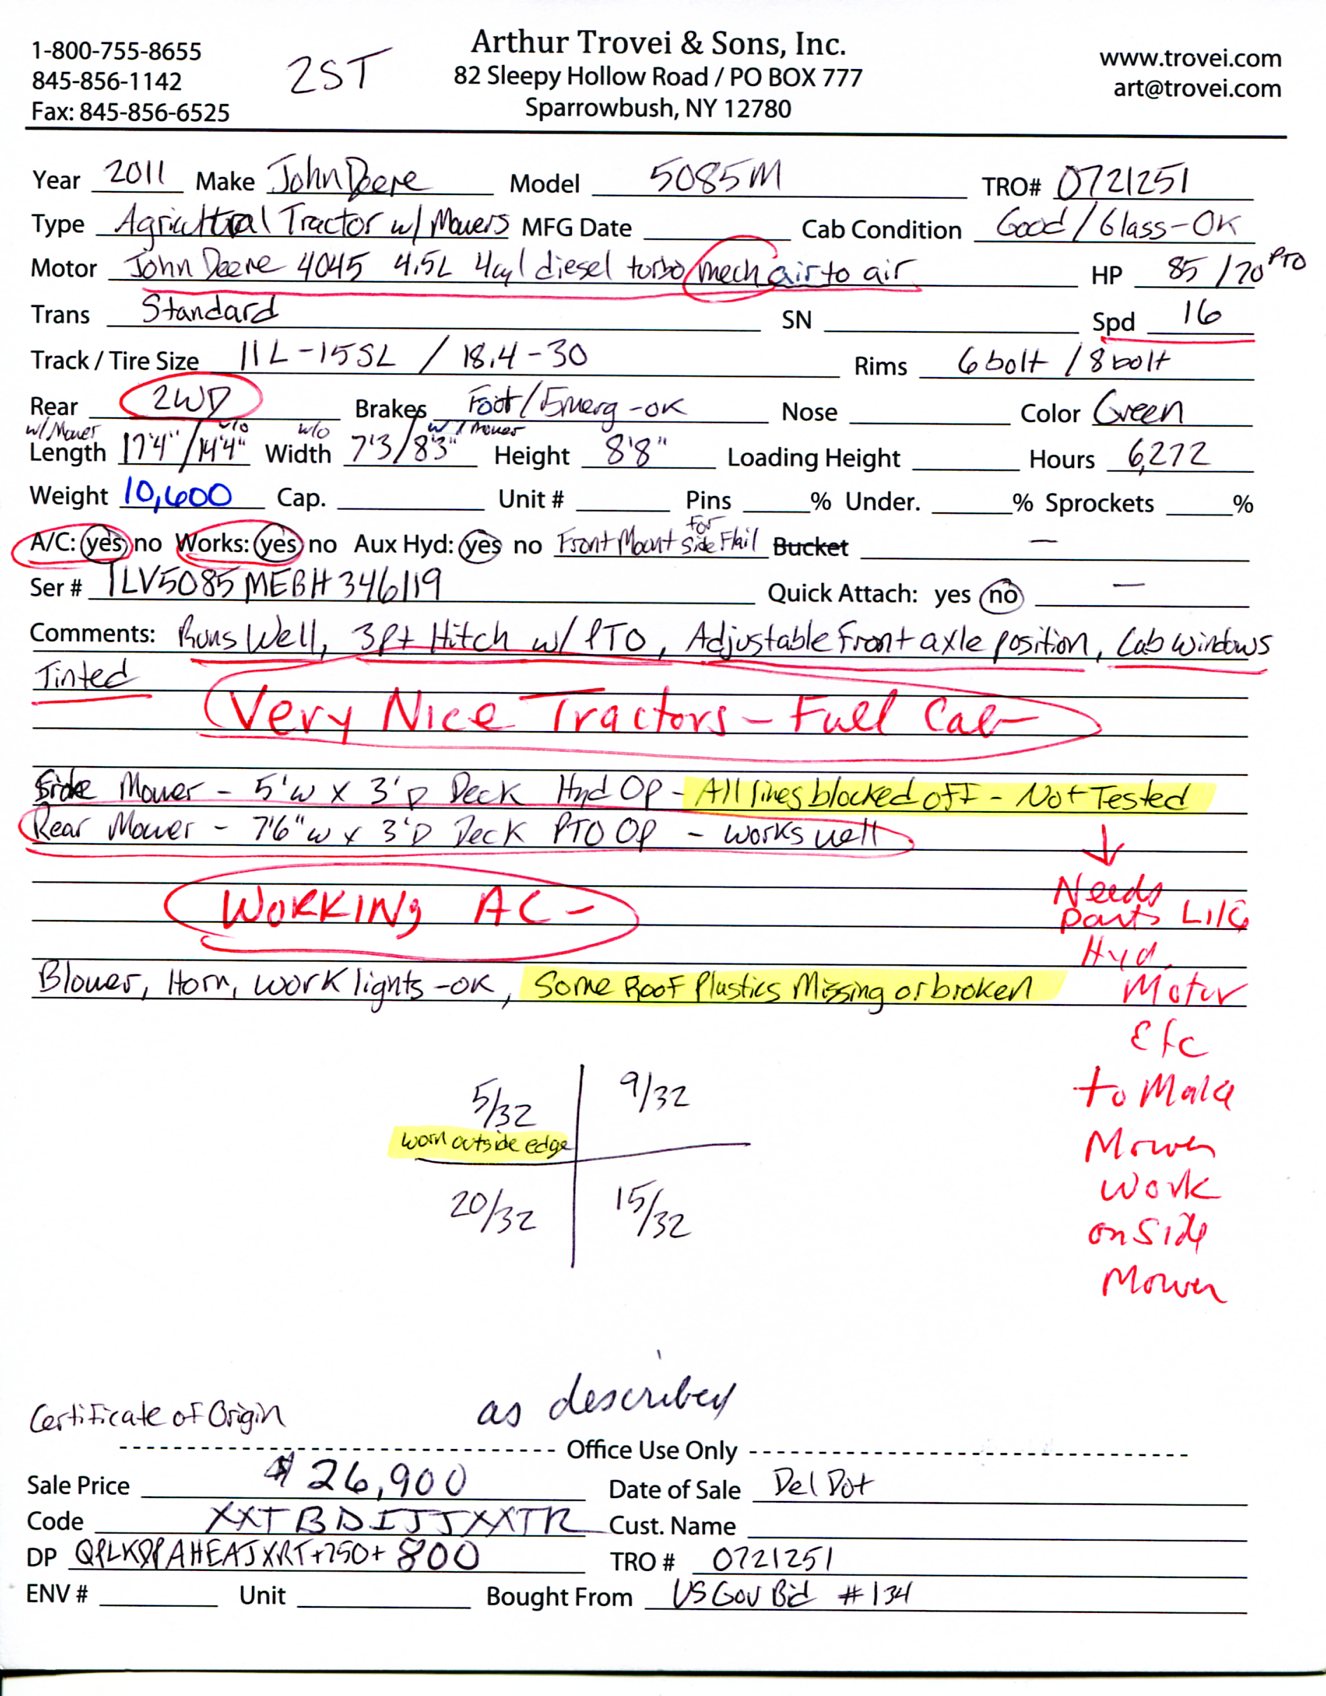 1-800-755-8655
845-856-1142
Fax: 845-856-6525
2ST
Arthur Trovei & Sons, Inc.
82 Sleepy Hollow Road / PO BOX 777
Sparrowbush, NY 12780
www.trovei.com
art@trovei.com
Year 2011 Make John Deere Model 5085M TRO# 0721251
Type Agricultral Tractor w/ Mowers MFG Date Cab Condition Good / Glass-OK
Motor John Deere 4045 4.5L 4cyl diesel turbo mech air to air HP 85 / 70 PTO
Trans Standard SN Spd 16
Track / Tire Size 11L-15SL / 18.4-30 Rims 6 bolt / 8 bolt
Rear 2WD Brakes Foot / Emerg-OK Nose Color Green
w/ Mower w/o w/o w/ Mower
Length 17'4" / 14'4" Width 7'3 / 8'3" Height 8'8" Loading Height Hours 6,272
Weight 10,600 Cap. Unit # Pins % Under. % Sprockets %
A/C: yes no Works: yes no Aux Hyd: yes no Front Mount for Side Flail Bucket —
Ser # 1LV5085MEBH346119 Quick Attach: yes no —
Comments: Runs Well, 3pt Hitch w/ PTO, Adjustable front axle position, Cab windows
Tinted
Very Nice Tractors - Full Cab-
Side Mower - 5'w x 3'D Deck Hyd Op - All lines blocked off - Not Tested
Rear Mower - 7'6"w x 3'D Deck PTO Op - works well
Working AC -
Needs
parts LI/G
Hyd.
Motor
Etc
to Make
Mower
Work
on Side
Mower
Blower, Horn, work lights-OK, Some Roof Plastics Missing or broken
5/32 9/32
worn outside edge
20/32 15/32
as described
Certificate of Origin
Office Use Only
Sale Price $26,900 Date of Sale Del Dot
Code XXTBDIJJXXTR Cust. Name
DP QPLKQPAHEAJXRT+750+800 TRO # 0721251
ENV # Unit Bought From US Gov Bid #134